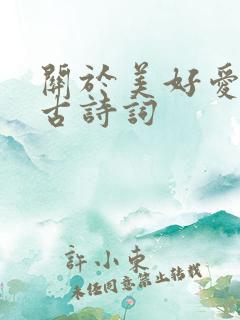 關於美好愛
古詩詞
許小東
未經同意禁止轉載